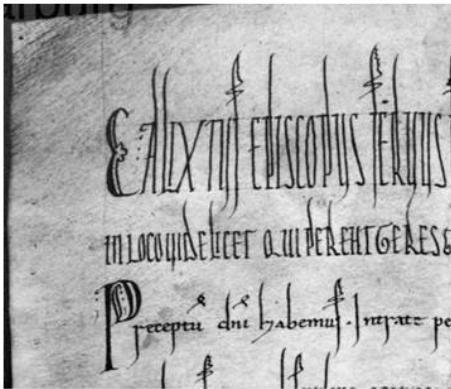 CALIXTUS EPISCOPUS SERUUS
IN LOCO UIDELICET QUI PEREHTGERES
Preceptū dn̄i habemus. Intrate pe